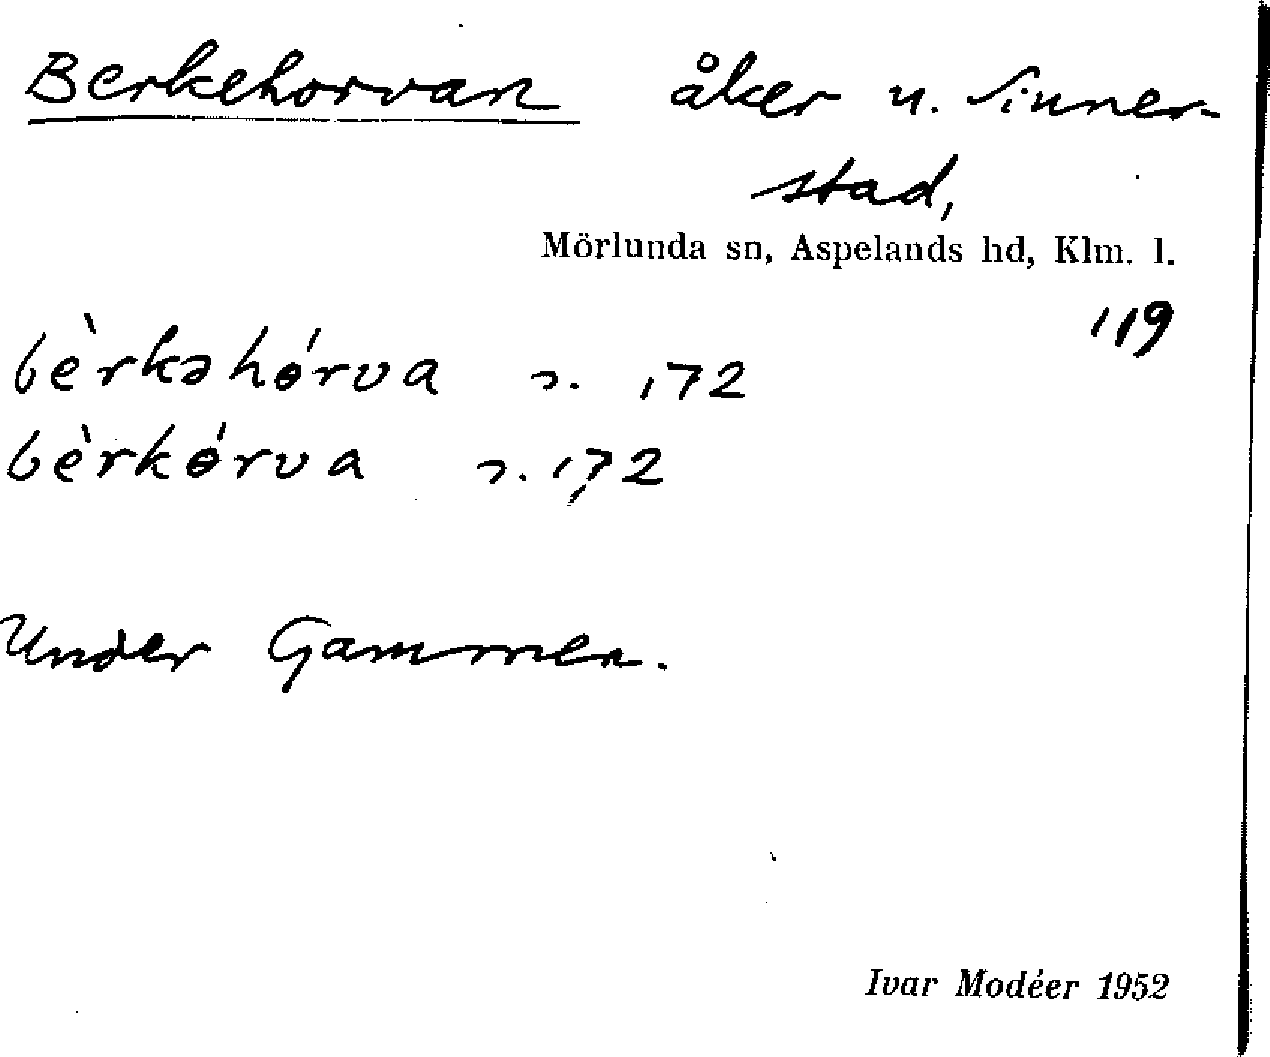 Berkehorvan åker u. Sinner-
stad,
Mörlunda sn, Aspelands hd, Klm. l.
119
bèrkəhɵ́rva s. 172
bèrkɵ́rva s. 172
Under Gammen.
Ivar Modéer 1952